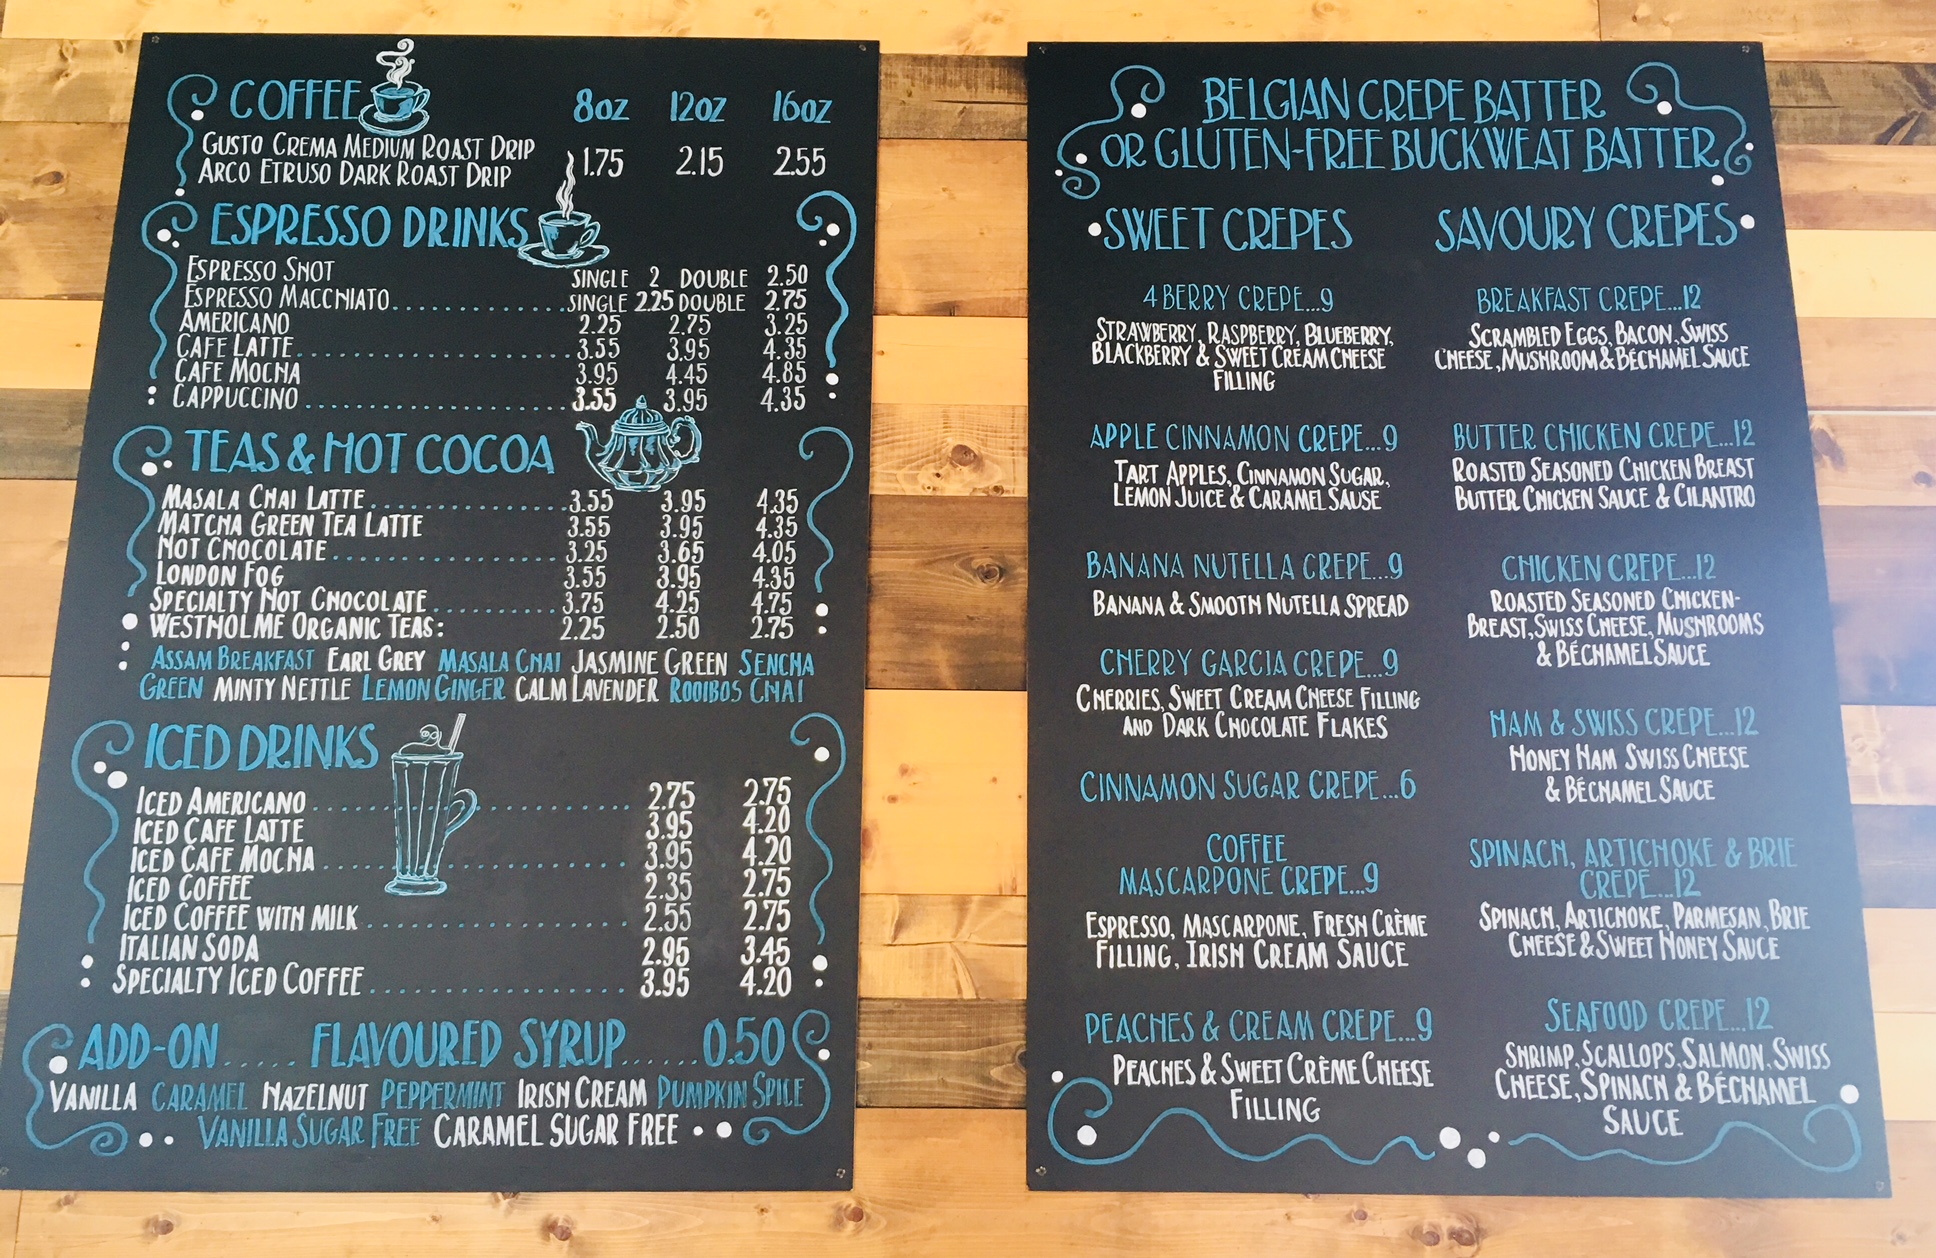 COFFEE 8OZ 12OZ 16OZ
GUSTO CREMA MEDIUM ROAST DRIP
ARCO ETRUSO DARK ROAST DRIP 1.75 2.15 2.55
ESPRESSO DRINKS
ESPRESSO SHOT SINGLE 2 DOUBLE 2.50
ESPRESSO MACCHIATO SINGLE 2.25 DOUBLE 2.75
AMERICANO 2.25 2.75 3.25
CAFE LATTE 3.55 3.95 4.35
CAFE MOCHA 3.95 4.45 4.85
CAPPUCCINO 3.55 3.95 4.35
TEAS & HOT COCOA
MASALA CHAI LATTE 3.55 3.95 4.35
MATCHA GREEN TEA LATTE 3.55 3.95 4.35
HOT CHOCOLATE 3.25 3.65 4.05
LONDON FOG 3.55 3.95 4.35
SPECIALTY HOT CHOCOLATE 3.75 4.25 4.75
WESTHOLME ORGANIC TEAS: 2.25 2.50 2.75
ASSAM BREAKFAST EARL GREY MASALA CHAI JASMINE GREEN SENCHA
GREEN MINTY NETTLE LEMON GINGER CALM LAVENDER ROOIBOS CHAI
ICED DRINKS
ICED AMERICANO 2.75 2.75
ICED CAFE LATTE 3.95 4.20
ICED CAFE MOCHA 3.95 4.20
ICED COFFEE 2.35 2.75
ICED COFFEE WITH MILK 2.55 2.75
ITALIAN SODA 2.95 3.45
SPECIALTY ICED COFFEE 3.95 4.20
ADD-ON...... FLAVOURED SYRUP......0.50
VANILLA CARAMEL HAZELNUT PEPPERMINT IRISH CREAM PUMPKIN SPICE
VANILLA SUGAR FREE CARAMEL SUGAR FREE
BELGIAN CREPE BATTER
OR GLUTEN-FREE BUCKWEAT BATTER
SWEET CREPES
4 BERRY CREPE...9
STRAWBERRY, RASPBERRY, BLUEBERRY,
BLACKBERRY & SWEET CREAM CHEESE
FILLING
APPLE CINNAMON CREPE...9
TART APPLES, CINNAMON SUGAR,
LEMON JUICE & CARAMEL SAUSE
BANANA NUTELLA CREPE...9
BANANA & SMOOTH NUTELLA SPREAD
CHERRY GARCIA CREPE...9
CHERRIES, SWEET CREAM CHEESE FILLING
AND DARK CHOCOLATE FLAKES
CINNAMON SUGAR CREPE...6
COFFEE
MASCARPONE CREPE...9
ESPRESSO, MASCARPONE, FRESH CRÈME
FILLING, IRISH CREAM SAUCE
PEACHES & CREAM CREPE...9
PEACHES & SWEET CRÈME CHEESE
FILLING
SAVOURY CREPES
BREAKFAST CREPE...12
SCRAMBLED EGGS, BACON, SWISS
CHEESE, MUSHROOM & BÉCHAMEL SAUCE
BUTTER CHICKEN CREPE...12
ROASTED SEASONED CHICKEN BREAST
BUTTER CHICKEN SAUCE & CILANTRO
CHICKEN CREPE...12
ROASTED SEASONED CHICKEN-
BREAST, SWISS CHEESE, MUSHROOMS
& BÉCHAMEL SAUCE
HAM & SWISS CREPE...12
HONEY HAM SWISS CHEESE
& BÉCHAMEL SAUCE
SPINACH, ARTICHOKE & BRIE
CREPE...12
SPINACH, ARTICHOKE, PARMESAN, BRIE
CHEESE & SWEET HONEY SAUCE
SEAFOOD CREPE...12
SHRIMP, SCALLOPS, SALMON, SWISS
CHEESE, SPINACH & BÉCHAMEL
SAUCE